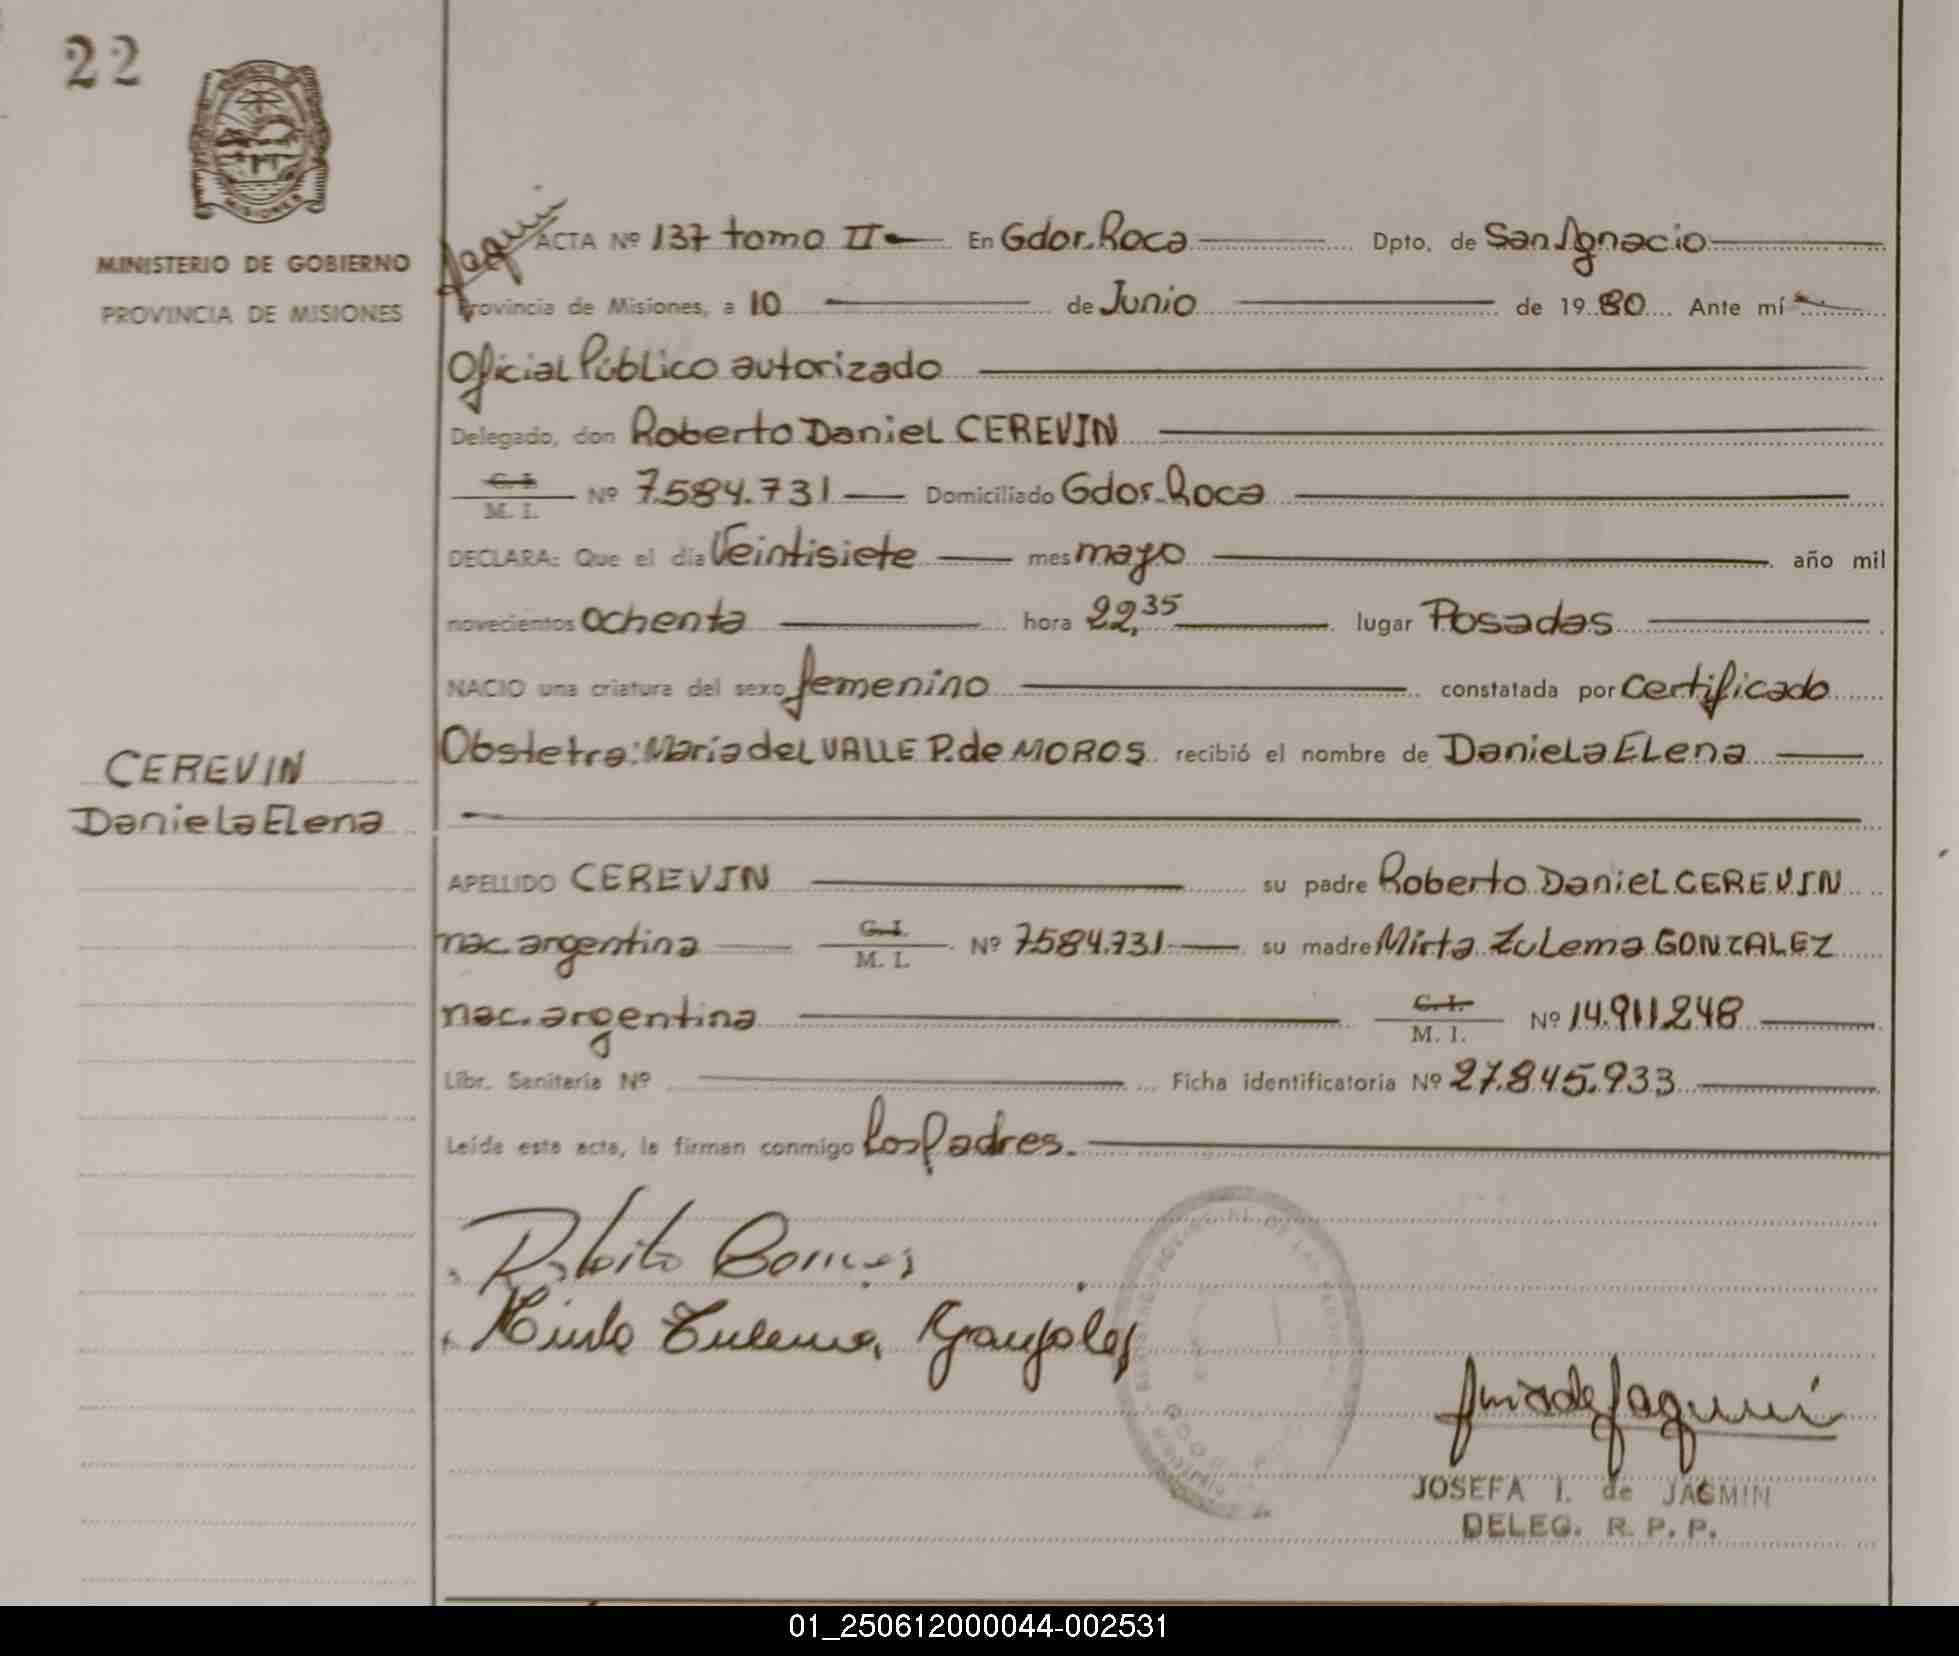 22
MISIONES
MINISTERIO DE GOBIERNO
PROVINCIA DE MISIONES
ACTA Nº 137 tomo II En Gdor. Roca Dpto. de San Ignacio
Provincia de Misiones, a 10 de Junio de 19 80 Ante mí
Oficial Público autorizado
Delegado, don Roberto Daniel CEREVIN
C. I.
M. I. Nº 7.584.731 Domiciliado Gdor. Roca
DECLARA: Que el día Veintisiete mes mayo año mil
novecientos ochenta hora 22,35 lugar Posadas
NACIO una criatura del sexo femenino constatada por certificado
Obstetra: Maria del VALLE P. de MOROS recibió el nombre de Daniela Elena
CEREVIN
Daniela Elena
APELLIDO CEREVIN su padre Roberto Daniel CEREVIN
nac. argentina C. I. M. I. Nº 7.584.731 su madre Mirta Zulema GONZALEZ
nac. argentina C. I. M. I. Nº 14.911.248
Libr. Sanitaria Nº Ficha identificatoria Nº 27.845.933
Leída esta acta, la firman conmigo los Padres.
Mirta Zulema Gonzalez
JOSEFA I. de JACMIN
DELEG. R. P. P.
01_250612000044-002531